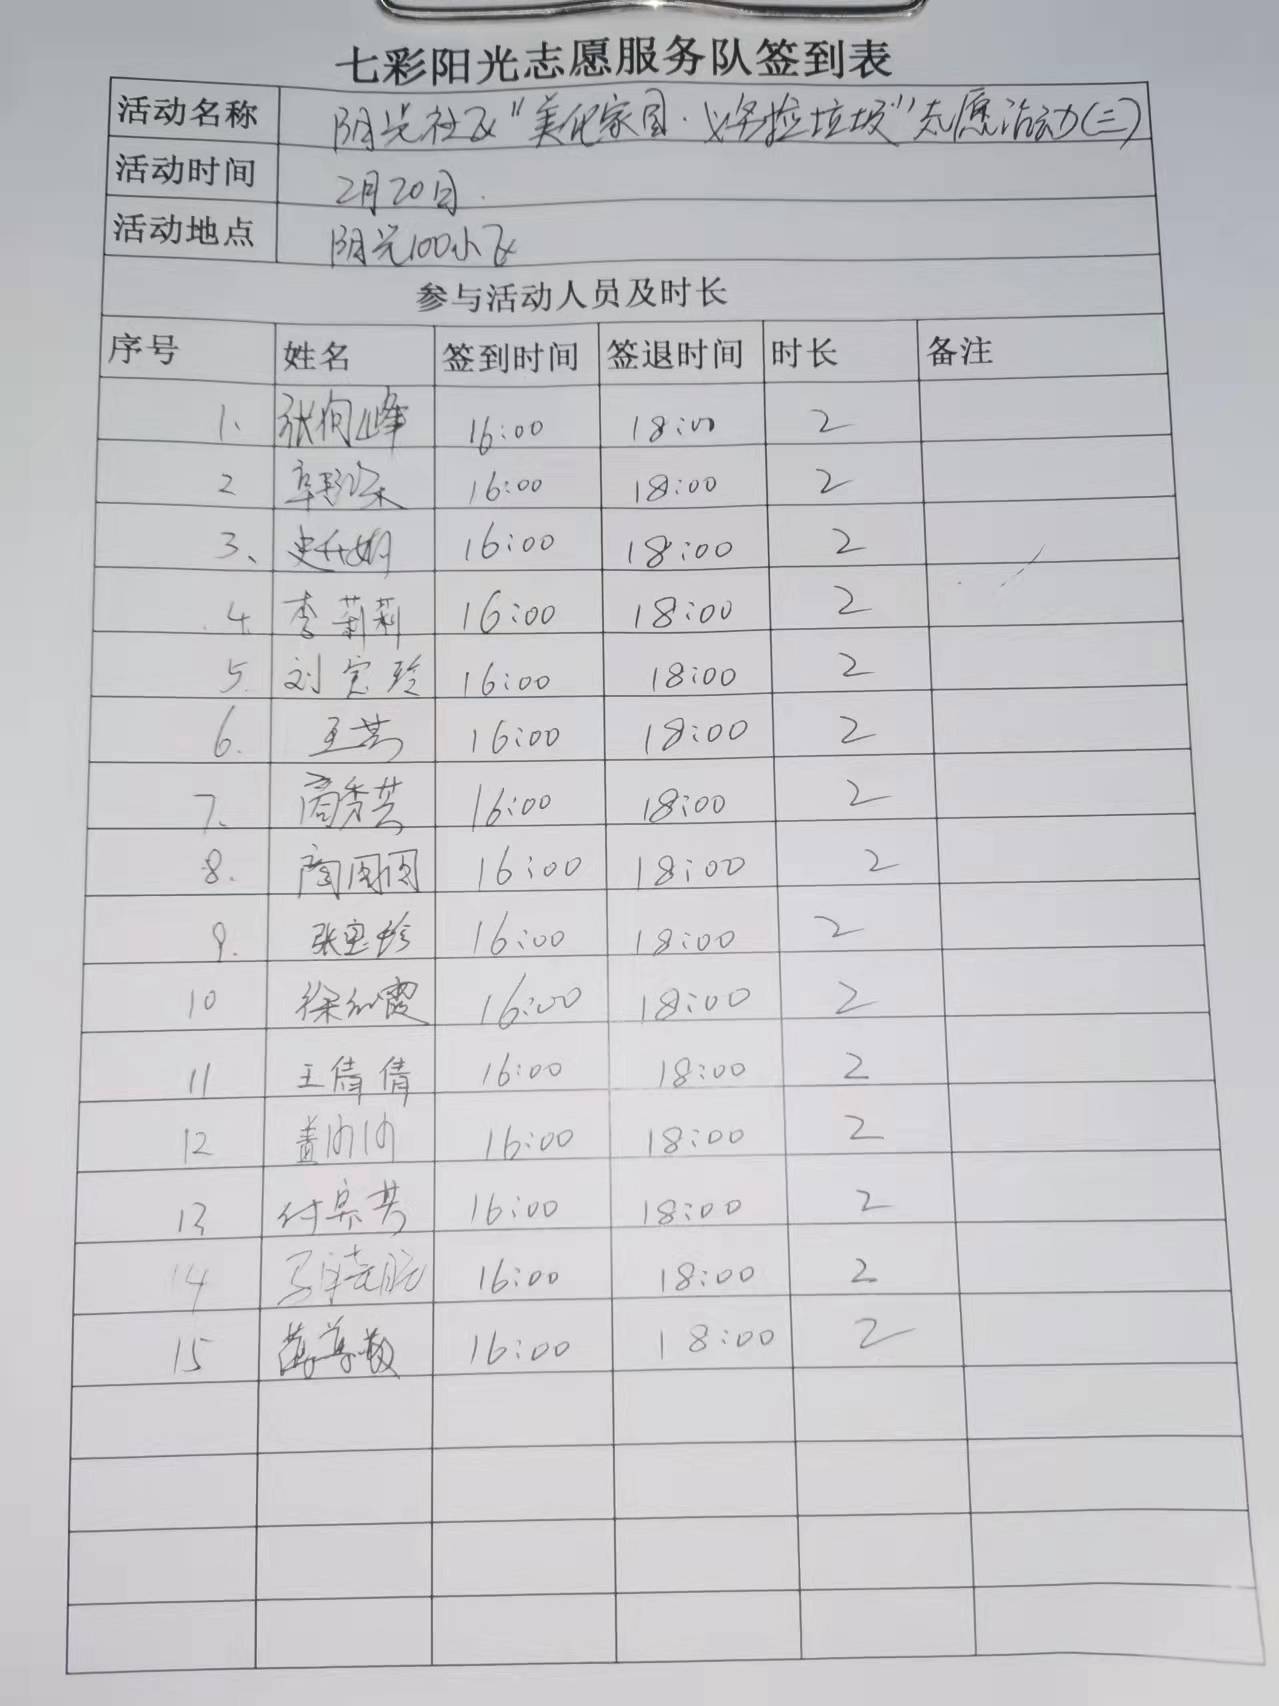 七彩阳光志愿服务队签到表
活动名称 阳光社区“美化家园·义务捡垃圾”志愿活动(三)
活动时间 2月20日.
活动地点 阳光100小区
参与活动人员及时长
序号 姓名 签到时间 签退时间 时长 备注
1、 张向峰 16:00 18:00 2
2 16:00 18:00 2
3、 16:00 18:00 2
4. 李莉莉 16:00 18:00 2
5. 刘宪玲 16:00 18:00 2
6. 王芳 16:00 18:00 2
7、 16:00 18:00 2
8. 陶圆圆 16:00 18:00 2
9. 张惠珍 16:00 18:00 2
10 徐红霞 16:00 18:00 2
11 王倩倩 16:00 18:00 2
12 16:00 18:00 2
13 16:00 18:00 2
14 16:00 18:00 2
15 16:00 18:00 2